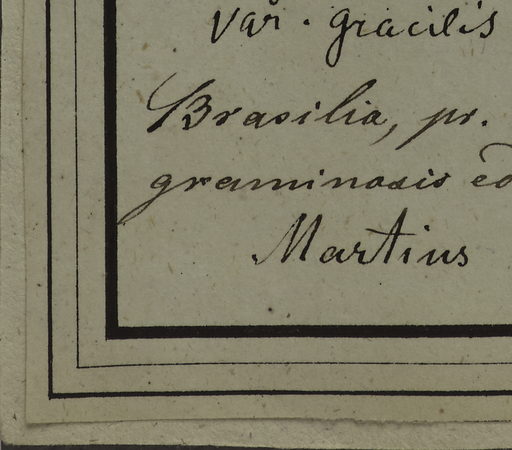 var. gracilis
Brasilia, pr.
graminosis
Martius